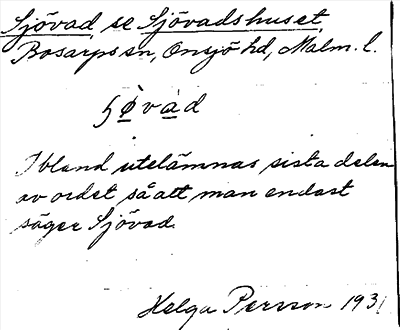 Sjövad, se Sjövadshuset,
Bosarps sn, Onsjö hd, Malm. l.
Ibland utelämnas sista delen
av ordet så att man endast
säger Sjövad.
Helga Persson 1931